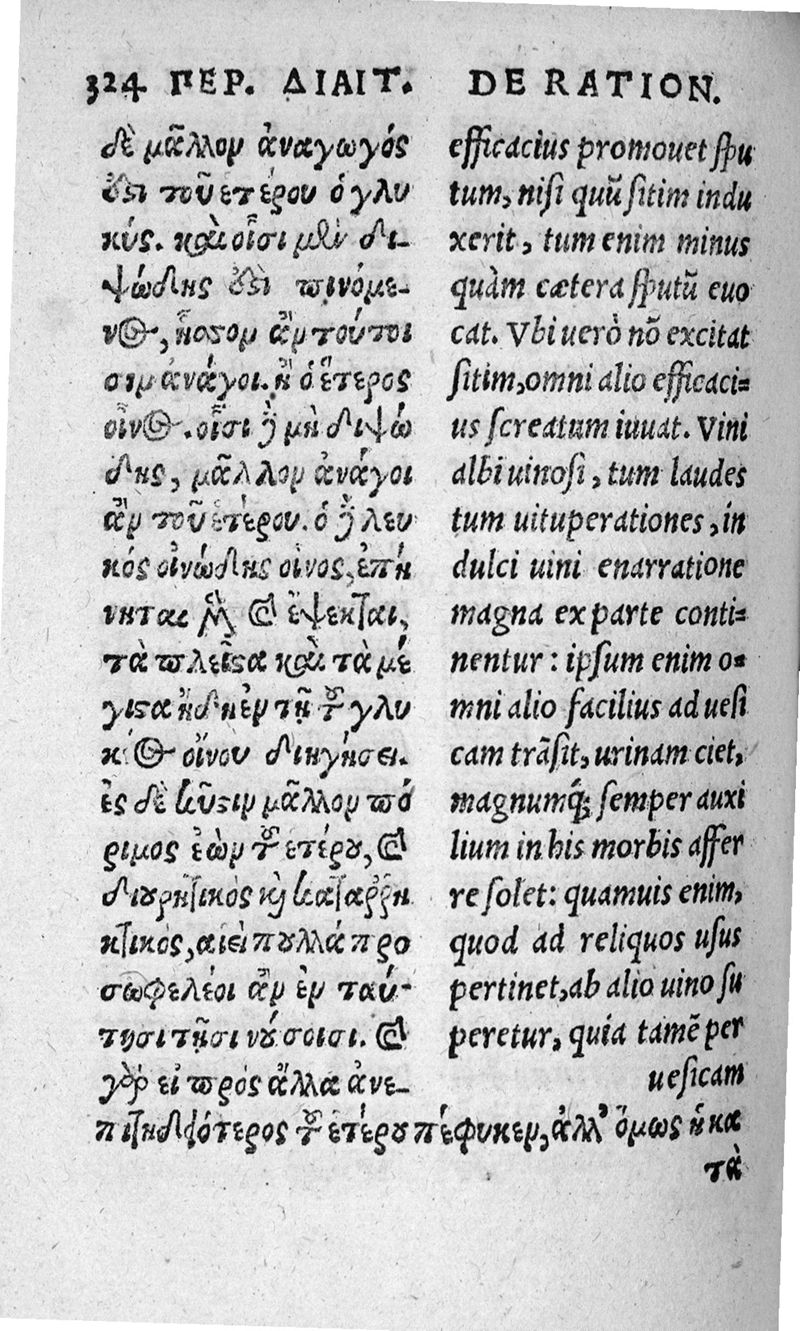 324 ΠΕΡ. ΔΙΑΙΤ.
δὲ μᾶλλον ἀναγωγός
ἐστι τοῦ ἑτέρου ὁ γλυ
κύς. καὶ οἷσι μὲν δι-
ψώδης ἐστὶ πινόμε-
νος, ἧσσον ἂν τούτοι
σιν ἀνάγοι. ἢ ὁ ἕτερος
οἶνος. οἷσι δὲ μὴ διψώ
δης, μᾶλλον ἀνάγοι
ἂν τοῦ ἑτέρου. ὁ δὲ λευ
κὸς οἰνώδης οἶνος, ἐπῄ
νηται μὲν καὶ ἔψεκται,
τὰ πλεῖστα καὶ τὰ μέ
γιστα ἤδη ἐν τῇ τοῦ γλυ
κέος οἴνου διηγήσει.
ἐς δὲ κύστιν μᾶλλον πό
ριμος ἐὼν τοῦ ἑτέρου, καὶ
διουρητικὸς καὶ καταρρη
κτικὸς, αἰεὶ πολλὰ προ
σωφελέοι ἂν ἐν ταύ-
τῃσι τῇσι νούσοισι. καὶ
γὰρ εἰ πρὸς ἄλλα ἀνε-
πιτηδειότερος τοῦ ἑτέρου πέφυκεν, ἀλλ' ὅμως ἡ κα
τὰ
DE RATION.
efficacius promouet spu
tum, nisi quū sitim indu
xerit, tum enim minus
quàm cætera sputū euo
cat. Vbi uerò nō excitat
sitim, omni alio efficaci=
us screatum iuuat. Vini
albi uinosi, tum laudes
tum uituperationes, in
dulci uini enarratione
magna ex parte conti=
nentur: ipsum enim o=
mni alio facilius ad uesi
cam trāsit, urinam ciet,
magnumq́; semper auxi
lium in his morbis affer
re solet: quamuis enim,
quod ad reliquos usus
pertinet, ab alio uino su
peretur, quia tamē per
uesicam